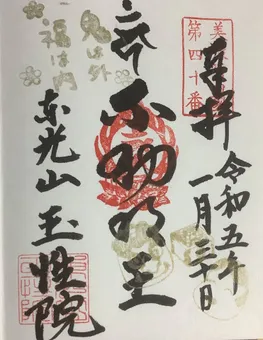 美
第四十番
奉拝
令和五年
一月三十日
不動明王
鬼は外
福は内
東光山
玉性院